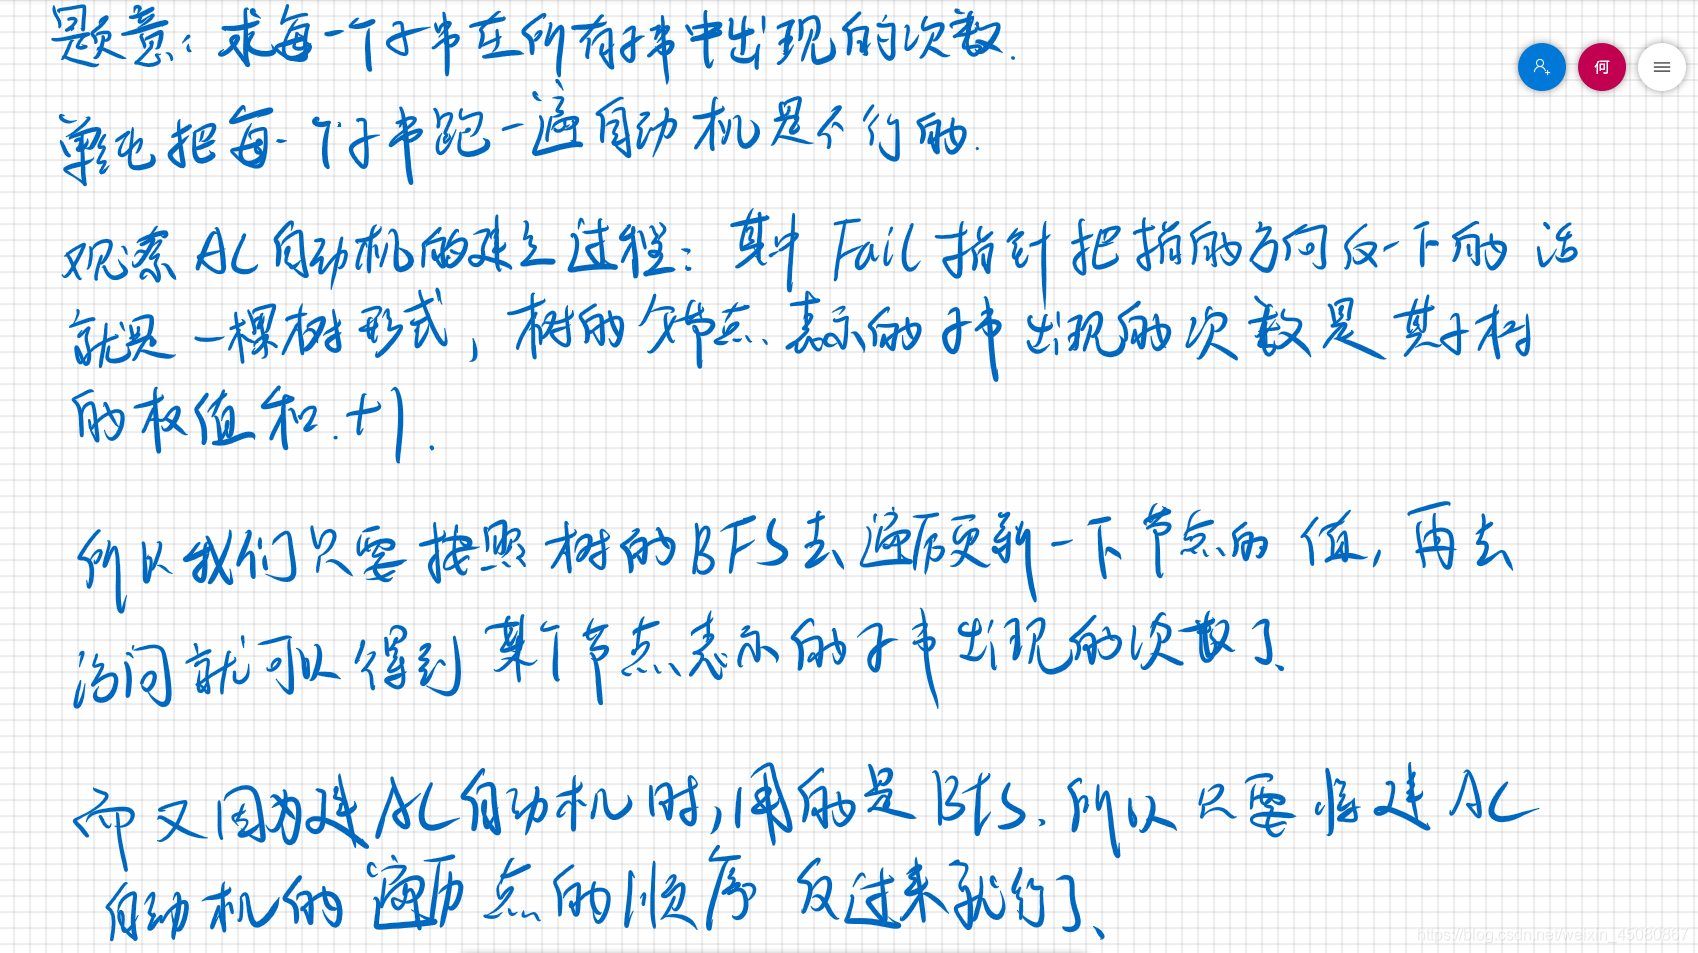 题意：求每一个子串在所有子串中出现的次数.
何
单纯把每一个子串跑一遍自动机是不行的.
观察AC自动机的建立过程：其中Fail指针把指的方向反一下的话
就是一棵树形式，树的父节点表示的子串出现的次数是其子树
的权值和.+1.
所以我们只要按照树的BFS去遍历更新一下节点的值，再去
访问就可以得到某个节点表示的子串出现的次数了、
而又因为建AC自动机时，用的是BFS、所以只要将建AC
自动机的遍历点的顺序反过来就行了、
https://blog.csdn.net/weixin_45080867